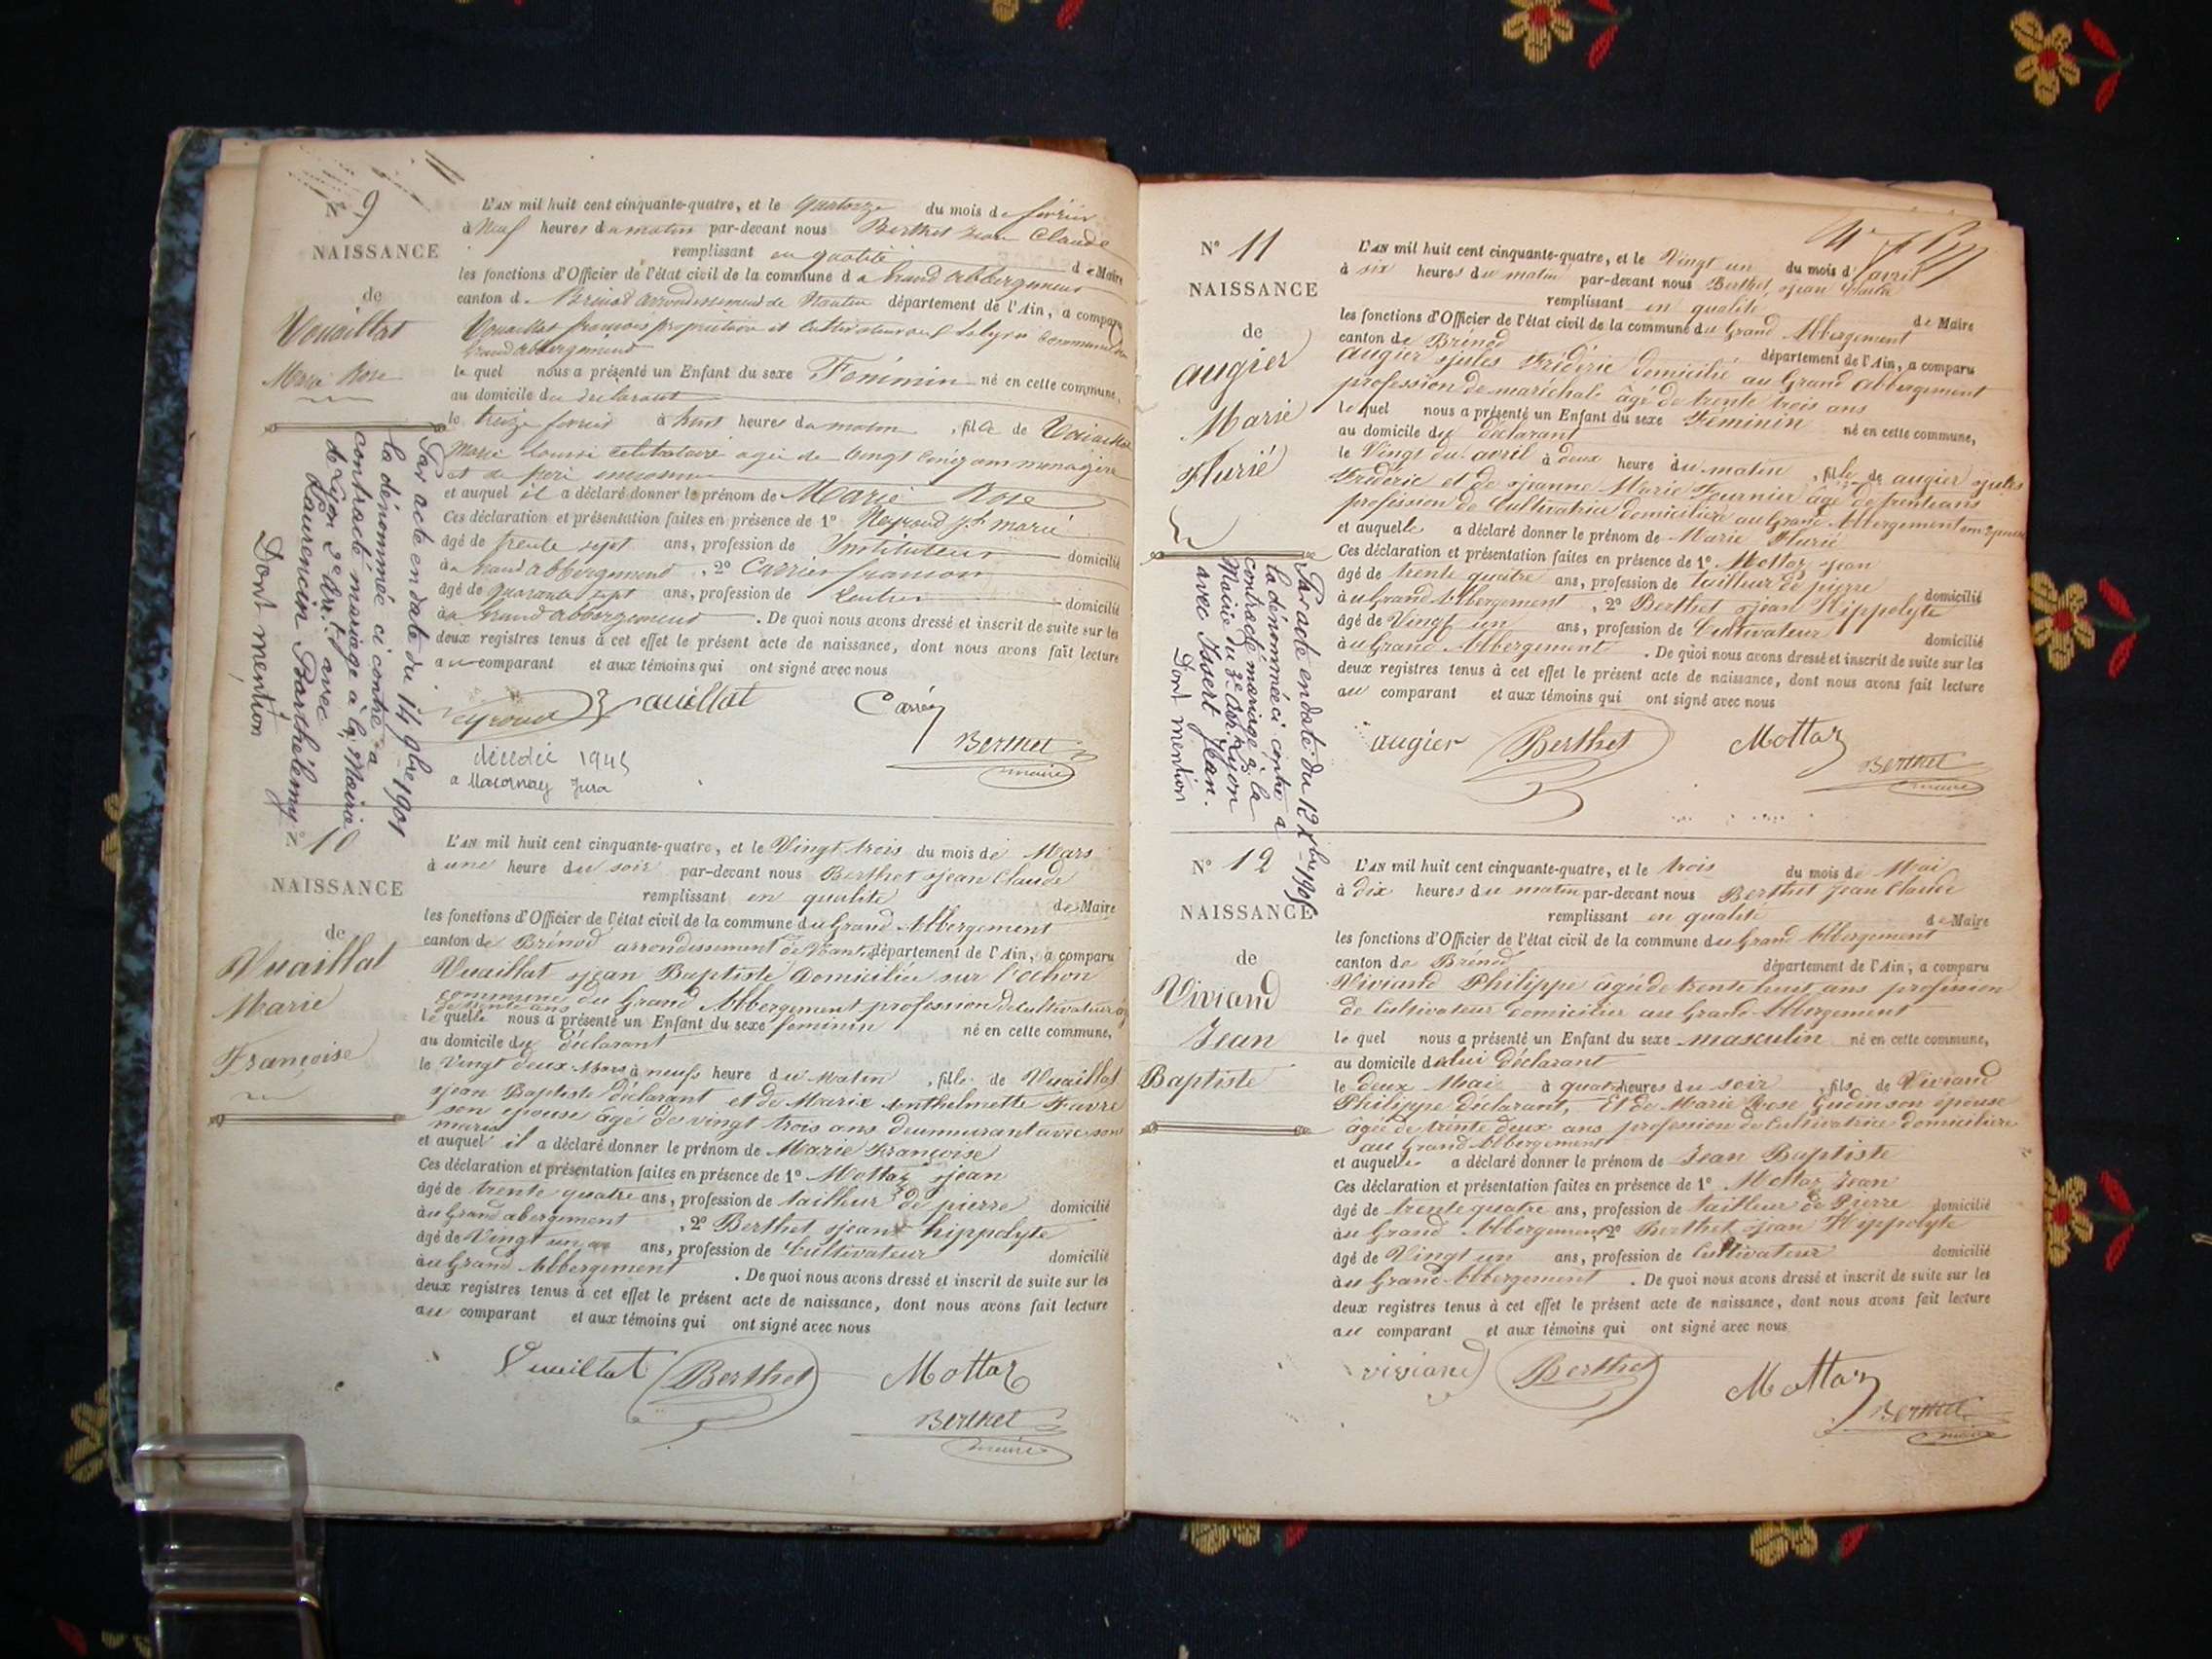 N° 9
NAISSANCE
de
Vouaillat
Marie Rose
L'AN mil huit cent cinquante-quatre, et le quatorze du mois de février
à Neuf heures du matin par-devant nous Berthet Jean Claude
remplissant en qualité de Maire
les fonctions d'Officier de l'état civil de la commune du Grand abbergement
canton de Brénod arrondissement de Nantua département de l'Ain, a comparu
Vouaillat françois propriétaire et cultivateur commune du
Grand abbergement
le quel nous a présenté un Enfant du sexe Féminin né en cette commune,
au domicile du déclarant
le treize février à huit heures du matin, fille de Vouaillat
Marie Louise célibataire agée de vingt cinq ans ménagère
et de père inconnu
et auquel il a déclaré donner le prénom de Marie Rose
Ces déclaration et présentation faites en présence de 1° Neyroud jh marie
âgé de trente sept ans, profession de Instituteur domicilié
à Grand abbergement, 2° Carrier françois
âgé de quarante sept ans, profession de Rentier domicilié
à Grand abbergement. De quoi nous avons dressé et inscrit de suite sur les
deux registres tenus à cet effet le présent acte de naissance, dont nous avons fait lecture
au comparant et aux témoins qui ont signé avec nous
Neyroud Vouaillat Carrier
Berthet
maire
décédée 1945
a Macornay Jura
Par acte en date du 14 9bre 1901
la dénommée ci contre a
contracté mariage à la Mairie
de Lyon 2e Arrt avec
Laurencin Barthélemy
Dont mention
N° 10
NAISSANCE
de
Vuaillat
Marie
Françoise
L'AN mil huit cent cinquante-quatre, et le Vingt trois du mois de Mars
à une heure du soir par-devant nous Berthet jean Claude
remplissant en qualité de Maire
les fonctions d'Officier de l'état civil de la commune du Grand Abbergement
canton de Brénod arrondissement de Nantua département de l'Ain, a comparu
Vuaillat jean Baptiste Domiciliée sur l'ochon
commune du Grand Abbergement profession de cultivateur agé
de trente ans
le quelle nous a présenté un Enfant du sexe feminin né en cette commune,
au domicile du déclarant
le Vingt deux Mars à neufs heure du Matin, fille de Vuaillat
jean Baptiste déclarant et de Marie Anthelmette Favre
son epouse âgé de vingt trois ans deumurant avec son
maris
et auquel il a déclaré donner le prénom de Marie Françoise
Ces déclaration et présentation faites en présence de 1° Mottaz jean
âgé de trente quatre ans, profession de tailleur de pierre domicilié
à u Grand abergement, 2° Berthet jean hippolyte
âgé de Vingt un ans, profession de Cultivateur domicilié
à u Grand Abbergement. De quoi nous avons dressé et inscrit de suite sur les
deux registres tenus à cet effet le présent acte de naissance, dont nous avons fait lecture
au comparant et aux témoins qui ont signé avec nous
Vuaillat Berthet Mottaz
Berthet
maire
N° 11
NAISSANCE
de
augier
Marie
Flurie
L'AN mil huit cent cinquante-quatre, et le Vingt un du mois d'avril
à six heures du matin par-devant nous Berthet jean Claude
remplissant en qualité de Maire
les fonctions d'Officier de l'état civil de la commune du Grand Abbergement
canton de Brénod département de l'Ain, a comparu
augier jules Fréderic domicilié au Grand abbergement
profession de maréchal âgé de trente trois ans
le quel nous a présenté un Enfant du sexe Féminin né en cette commune,
au domicile du déclarant
le Vingt du avril à deux heure du matin, fille de augier jules
Fréderic et de jeanne Marie Fournier agé de trente ans
profession de Cultivatrice domicilière au Grand Abbergement son epouse
et auquelle a déclaré donner le prénom de Marie Flurie
Ces déclaration et présentation faites en présence de 1° Mottaz jean
âgé de trente quatre ans, profession de tailleur de pierre domicilié
à u Grand Abbergement, 2° Berthet jean Hippolyte
âgé de Vingt un ans, profession de Cultivateur domicilié
à u Grand Abbergement. De quoi nous avons dressé et inscrit de suite sur les
deux registres tenus à cet effet le présent acte de naissance, dont nous avons fait lecture
au comparant et aux témoins qui ont signé avec nous
augier Berthet Mottaz
Berthet
maire
Par acte en date du 12 Xbre 1905
la dénommée ci contre a
contracté mariage à la
Mairie du 3e Arr. Lyon
avec Issert Jean.
Dont mention
N° 12
NAISSANCE
de
Viviand
Jean
Baptiste
L'AN mil huit cent cinquante-quatre, et le trois du mois de Mai
à dix heures du matin par-devant nous Berthet Jean Claude
remplissant en qualité de Maire
les fonctions d'Officier de l'état civil de la commune du Grand Abbergement
canton de Brénod département de l'Ain, a comparu
Viviand Philippe âgé de trente huit ans profession
de Cultivateur domicilier au Grand Abbergement
le quel nous a présenté un Enfant du sexe masculin né en cette commune,
au domicile de lui déclarant
le deux Mai à quatre heures du soir, fils de Viviand
Philippe déclarant, Et de Marie Rose Gudin son épouse
âgée de trente deux ans profession de Cultivatrice domiciliere
au Grand Abbergement
et auquelle a déclaré donner le prénom de Jean Baptiste
Ces déclaration et présentation faites en présence de 1° Mottaz Jean
âgé de trente quatre ans, profession de tailleur de Pierre domicilié
à u Grand Abbergement 2° Berthet jean Hyppolyte
âgé de Vingt un ans, profession de Cultivateur domicilié
à u Grand Abbergement. De quoi nous avons dressé et inscrit de suite sur les
deux registres tenus à cet effet le présent acte de naissance, dont nous avons fait lecture
au comparant et aux témoins qui ont signé avec nous
viviand Berthet Mottaz
Berthet
maire